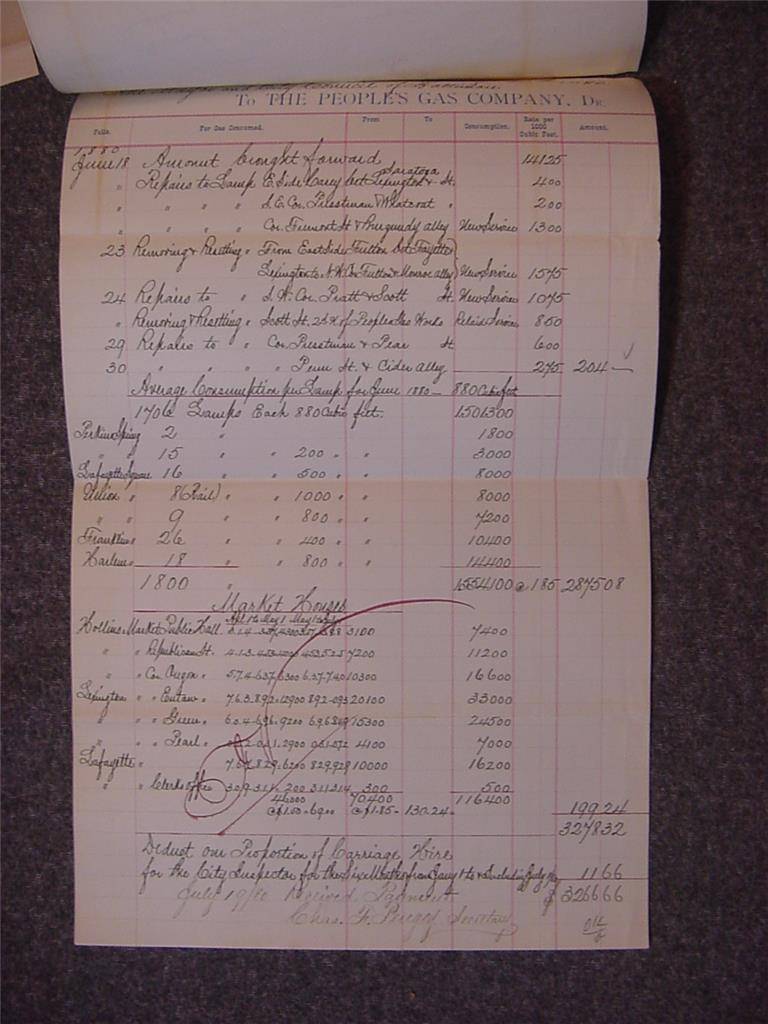 To THE PEOPLE'S GAS COMPANY, Dr.
Folio. For Gas Consumed. From To Consumption. Rate per 1000 Cubic Feet. Amount.
1880
June 18 Amount brought forward 14125
" Repairs to Lamp E. Side Carey bet Lexington & Saratoga St. 400
" " " " S. E. Cor. Presstman & Whatcoat " 200
" " " " Cor Fremont St & Burgundy alley New Service 1300
23 Removing & Resetting " From East Side Fulton bet Fayette
Lexington to N.W. Cor Fulton & Monroe alley New Service 1575
24 Repairs to " S. W. Cor. Pratt & Scott St. New Service 1075
" Removing & Resetting " Scott St. 2d N. of Peoples Gas Works Relaid Service 850
29 Repairs to " Cor. Presstman & Pear St 600
30 " " " Penn St. & Cider alley 275 204 —
Average Consumption per Lamp for June 1880 — 880 Cubic feet
1706 Lamps Each 880 Cubic feet. 1501300
Perkins Spring 2 " 1800
" " 15 " " 200 " " 3000
Lafayette Square 16 " " 500 " " 8000
Union " 8 (Rail) " " 1000 " " 8000
" " 9 " " 800 " " 7200
Franklin " 26 " " 400 " " 10400
Harlem " 18 " " 800 " " 14400
1800 " 1554100 @ 185 287508
Market Houses
Hollins Market Public Hall 3100 7400
" " Republican St. 7200 11200
" " Cor Oregon " 574-637 6300 637-740 10300 16600
Lexington " " Eutaw " 763-892-12900 892-093 20100 33000
" " " Green " 604-696-9200 696-849 15300 24500
" " " Pearl " 2900 4100 7000
Lafayette " 767-829-6200 829-929 10000 16200
" " Clerks Office 309-311 200 311-314 300 500
46000 70400 116400
@ $1.50 - 69.00 @ $1.85 - 130.24 - 19924
327832
Deduct our Proportion of Carriage Hire
for the City Inspector for the Six Months from Jany 1st to & Including 1166
July 19/80 Received Payment $ 326666
Chas. F. Secretary